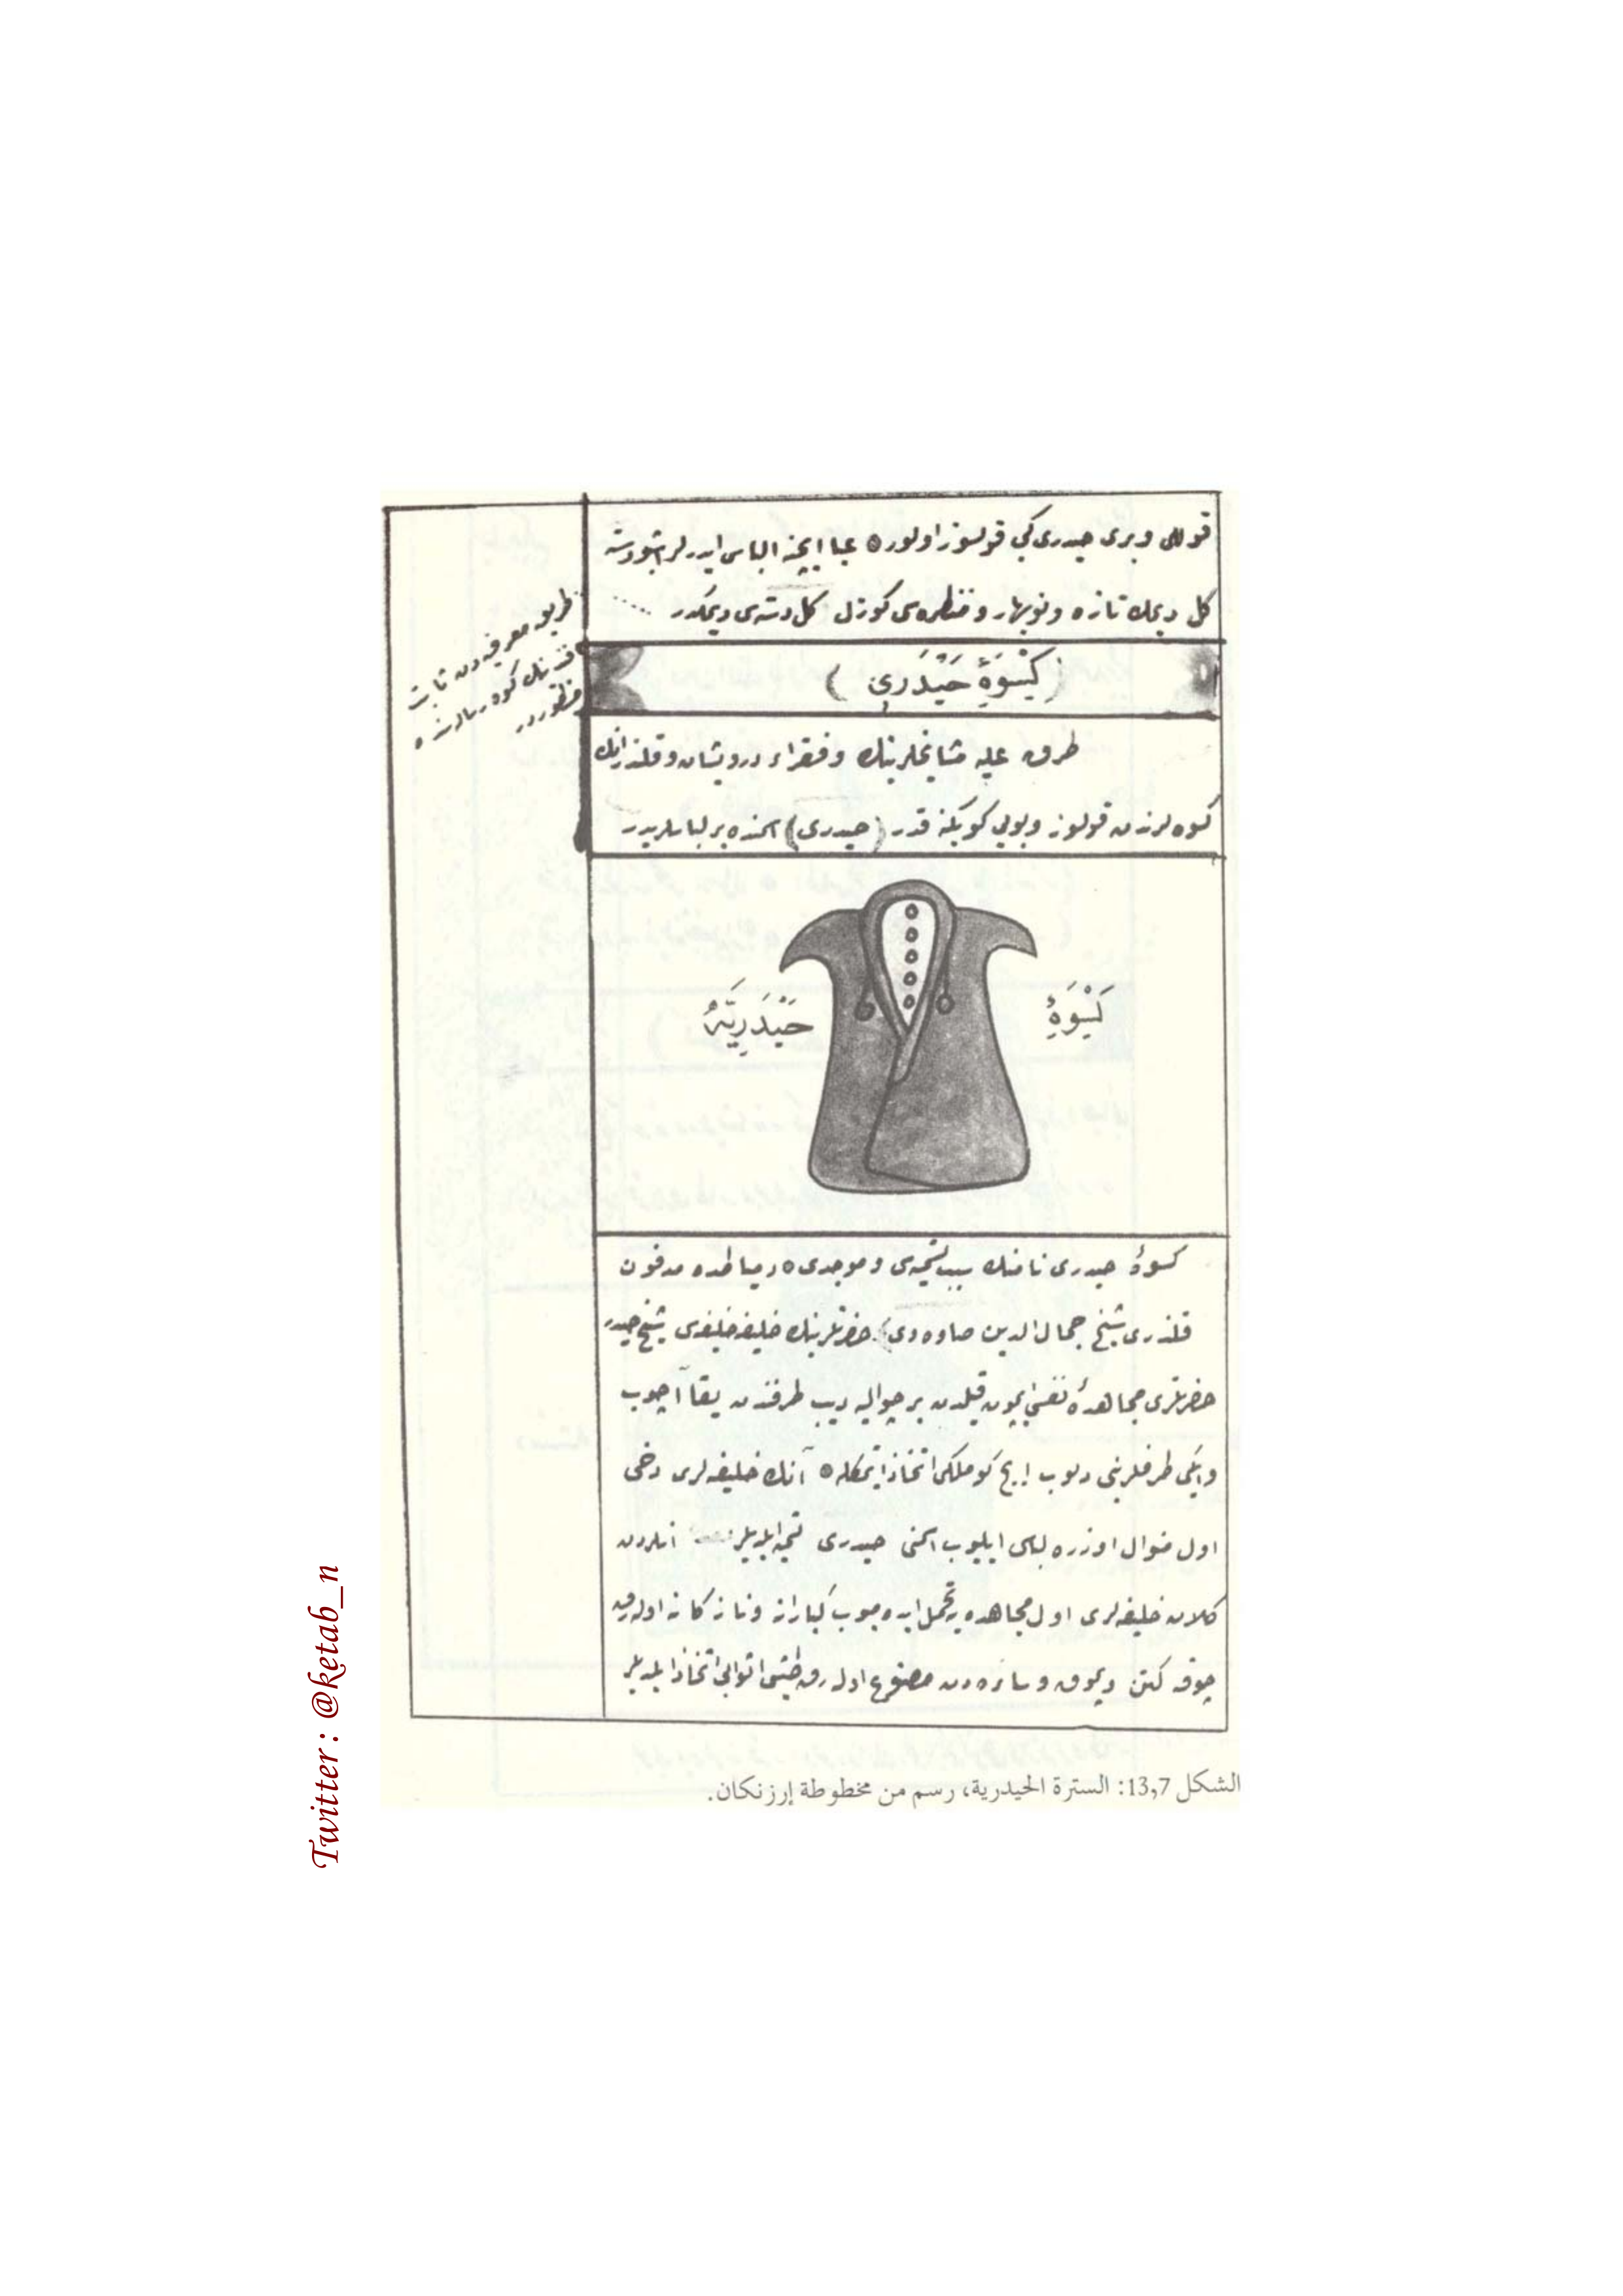 قوللی و بری حیدری کبی قولسوز اولور عبا ایچنه الباس ایدرلر اشبو دسته
کل دیمك تازه و نوبهار و منظره‌سی کوزل کل دسته‌سی دیمکدر
(كِسْوَةِ حَيْدَرِي)
طرق علیه مشایخلرینك و فقراء درویشان و قلندرانك
کسوه‌لرندن قولسوز و بویی کوبکنه قدر (حیدری) اسمنده بر لباسلریدر
كِسْوَةِ
حَيْدَرِيَّه
کسوۀ حیدری نامنك سبب تسمیه‌سی و موجدی دمیاطده مدفون
قلندری شیخ جمال الدین صاوه‌وی حضرتلرینك خلیفه خلیفه‌سی شیخ حیدر
حضرتلری مجاهدۀ نفسی ایچون قیلدن بر چوالی دیب طرفندن یقا آچوب
و ایکی طرفلرینی دلوب ایچ کوملکی اتخاذ ایتمکله آنك خلیفه‌لری دخی
اول منوال اوزره لباس ایلیوب اسمنی حیدری تسمیه ایلدیلر انلردن
کلان خلیفه‌لری اول مجاهده‌یه تحمل ایده‌میوب کبارانه و نازکانه اوله‌رق
چوقه کتن و یموق و سائره‌دن مصنوع اوله‌رق اثوابی اتخاذ ایلدیلر
الشكل 13,7: السترة الحيدرية، رسم من مخطوطة إرزنكان.
Twitter: @ketab_n